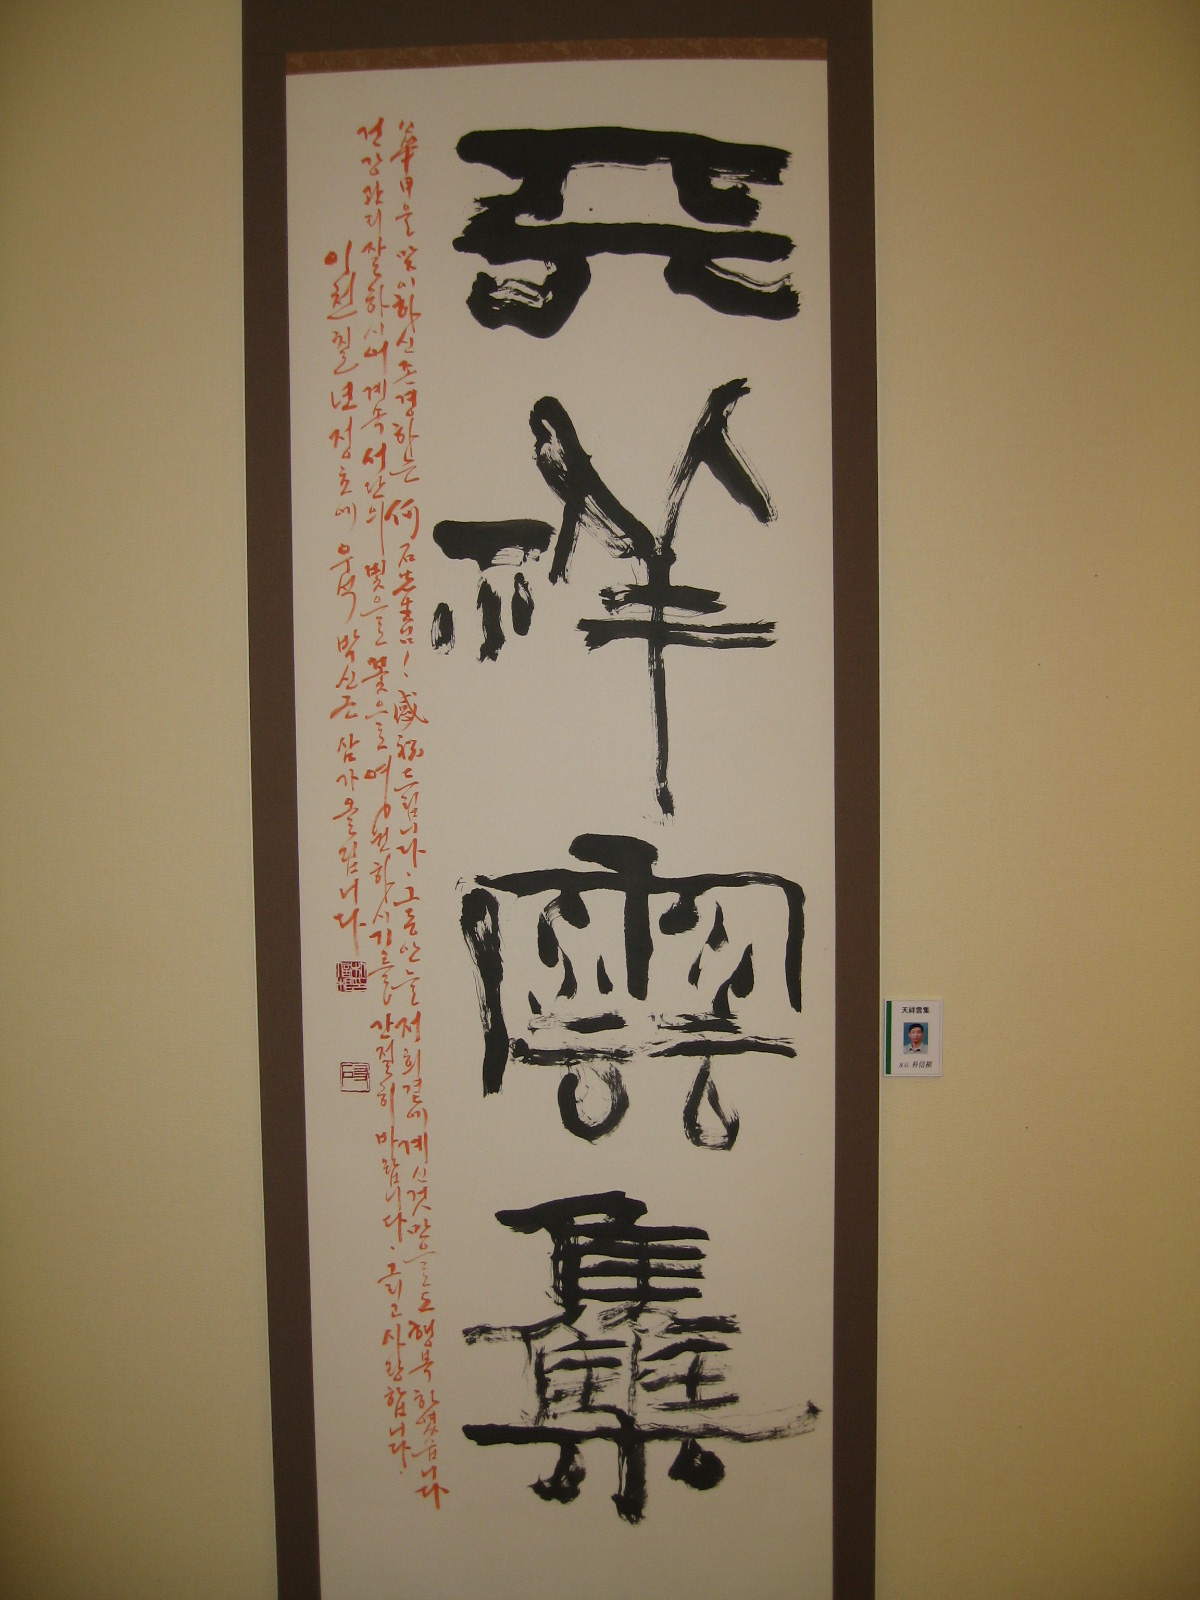 天祥雲集
華甲을 맞이하신 존경하는 何石先生님! 感祝드립니다. 그동안 늘 저희곁에 계신것만으로도 행복하였습니다
건강관리 잘하시어 계속 서단의 빛으로 꽃으로 영원하시기를 간절히 바랍니다. 그리고 사랑합니다.
이천칠년 정초에 우석 박신근 삼가올립니다
天祥雲集